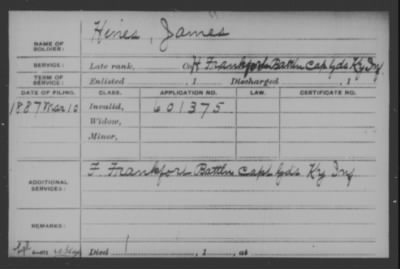 Hines, James
NAME OF SOLDIER:
SERVICE: Late rank, Co. H Frankfort Battln Cap Gds Ky Inf
TERM OF SERVICE: Enlisted , 1 Discharged , 1
DATE OF FILING. CLASS. APPLICATION NO. LAW. CERTIFICATE NO.
1887 Mar 10 Invalid, 601375
Widow,
Minor,
ADDITIONAL SERVICES: F. Frankfort Battln Capt Gds Ky Inf
REMARKS:
Died , 1 , at